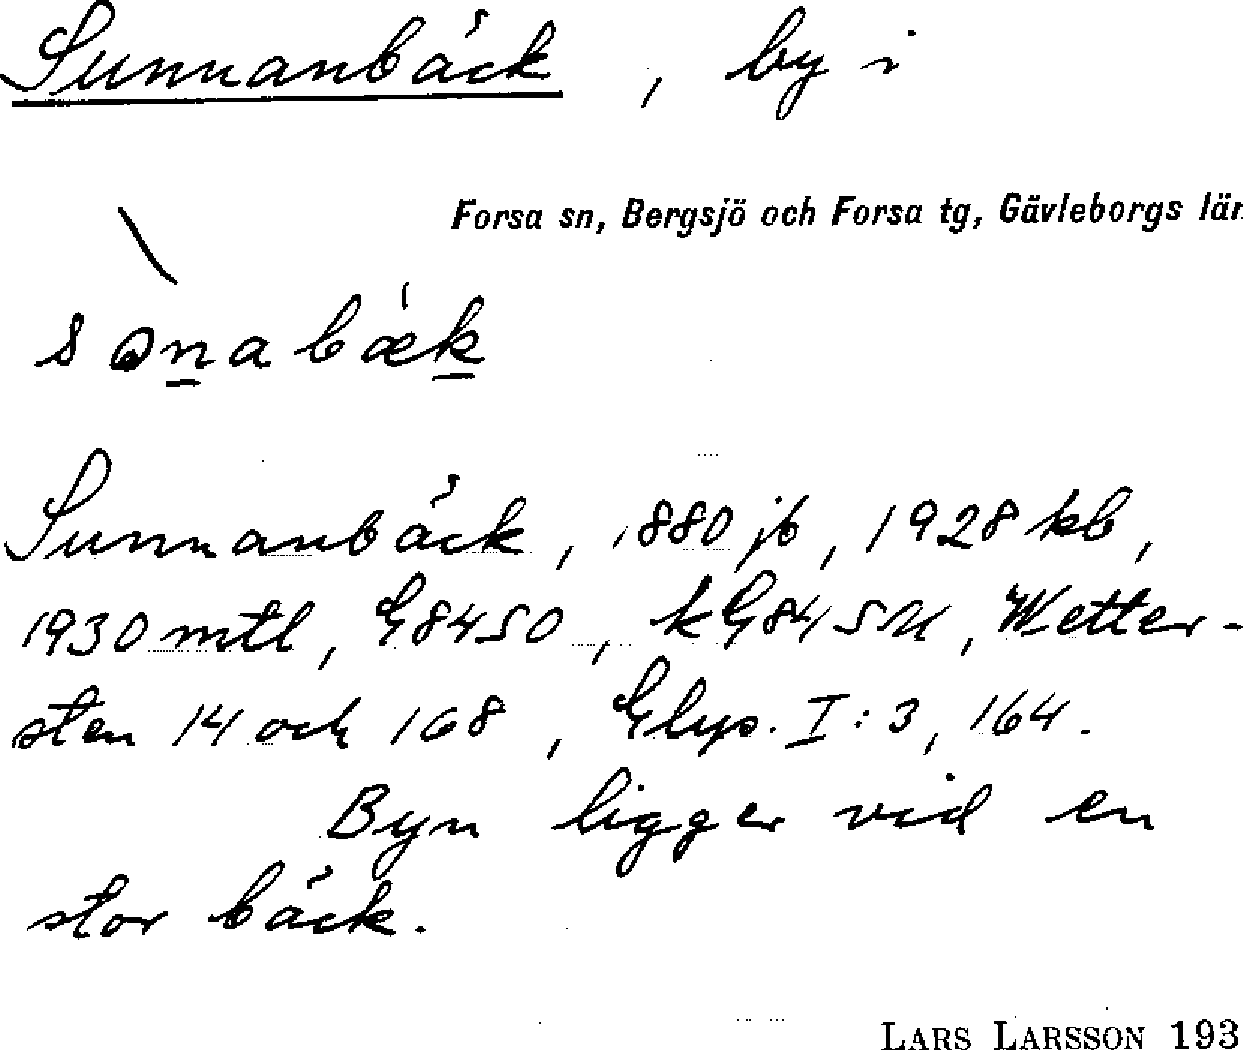 Sunnanbäck, by i
Forsa sn, Bergsjö och Forsa tg, Gävleborgs län
sɷnabæk
Sunnanbäck, 1880 jb, 1928 kb,
1930 mtl, G84SO, kG84SU, Wetter-
sten 14 och 168, Glys. I:3, 164.
Byn ligger vid en
stor bäck.
LARS LARSSON 193